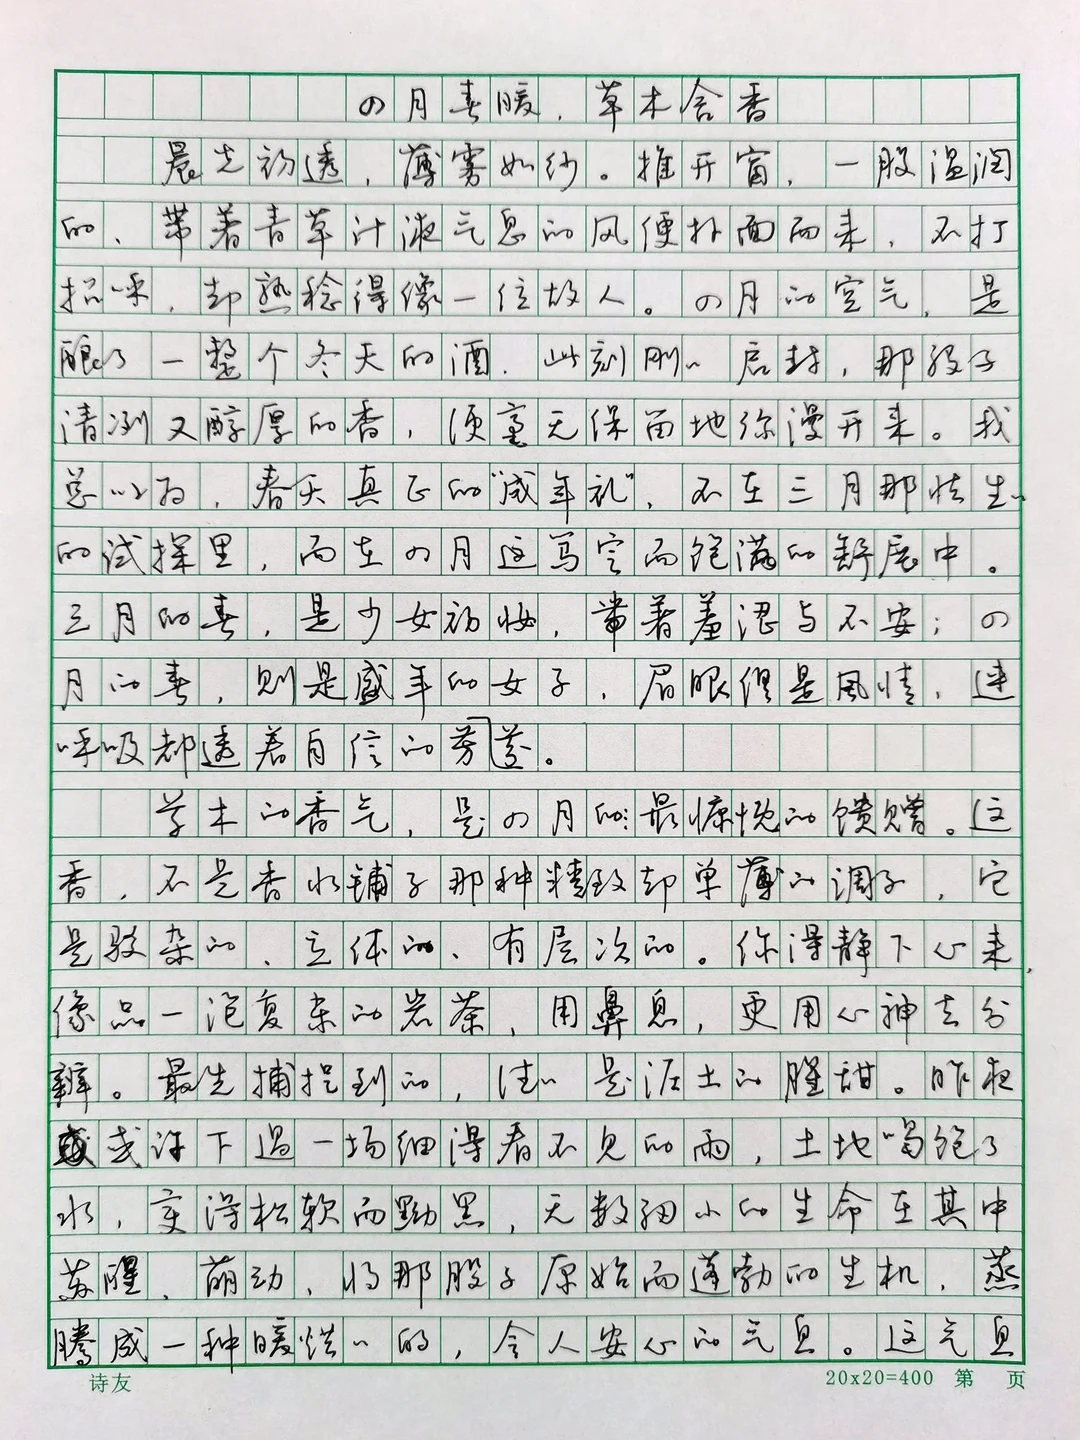 四月春暖，草木含香
晨光初透，薄雾如纱。推开窗，一股温润
的、带着青草汁液气息的风便扑面而来，不打
招呼，却熟稔得像一位故人。四月的空气，是
酿了一整个冬天的酒，此刻刚刚启封，那股子
清冽又醇厚的香，便毫无保留地弥漫开来。我
总以为，春天真正的“成年礼”，不在三月那怯生生
的试探里，而在四月这笃定而饱满的舒展中。
三月的春，是少女初妆，带着羞涩与不安；四
月的春，则是盛年的女子，眉眼俱是风情，连
呼吸都透着自信的芬芳。
草木的香气，是四月的最慷慨的馈赠。这
香，不是香水铺子那种精致却单薄的调子，它
是驳杂的、立体的、有层次的。你得静下心来，
像品一泡复杂的岩茶，用鼻息，更用心神去分
辨。最先捕捉到的，往往是泥土的腥甜。昨夜
或许下过一场细得看不见的雨，土地喝饱了
水，变得松软而黝黑，无数细小的生命在其中
苏醒、萌动，将那股子原始而蓬勃的生机，蒸
腾成一种暖烘烘的，令人安心的气息。这气息
诗友
20x20=400 第 页